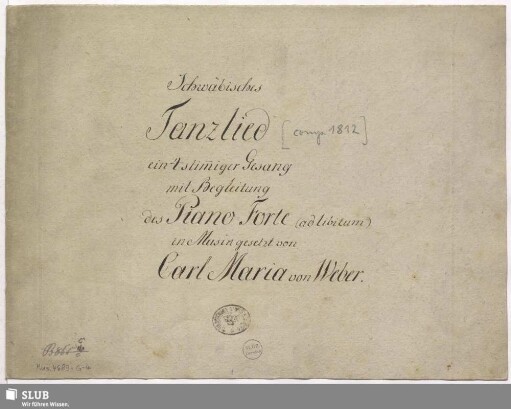 Schwäbisches
Tanzlied [comp 1812]
ein 4 stimiger Gesang
mit Begleitung
des Piano Forte (ad libitum)
in Musik gesetzt von
Carl Maria von Weber.
SLUB
Wir führen Wissen.